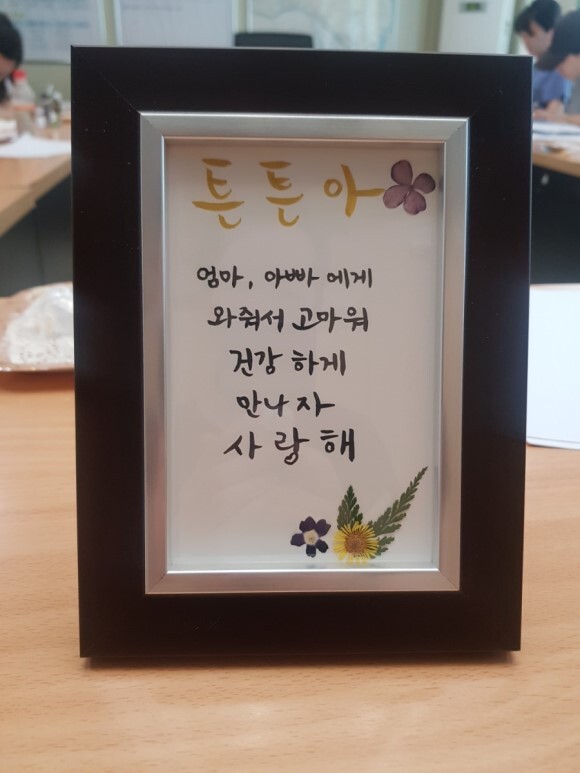 튼튼아
엄마, 아빠에게
와줘서 고마워
건강하게
만나자
사랑해